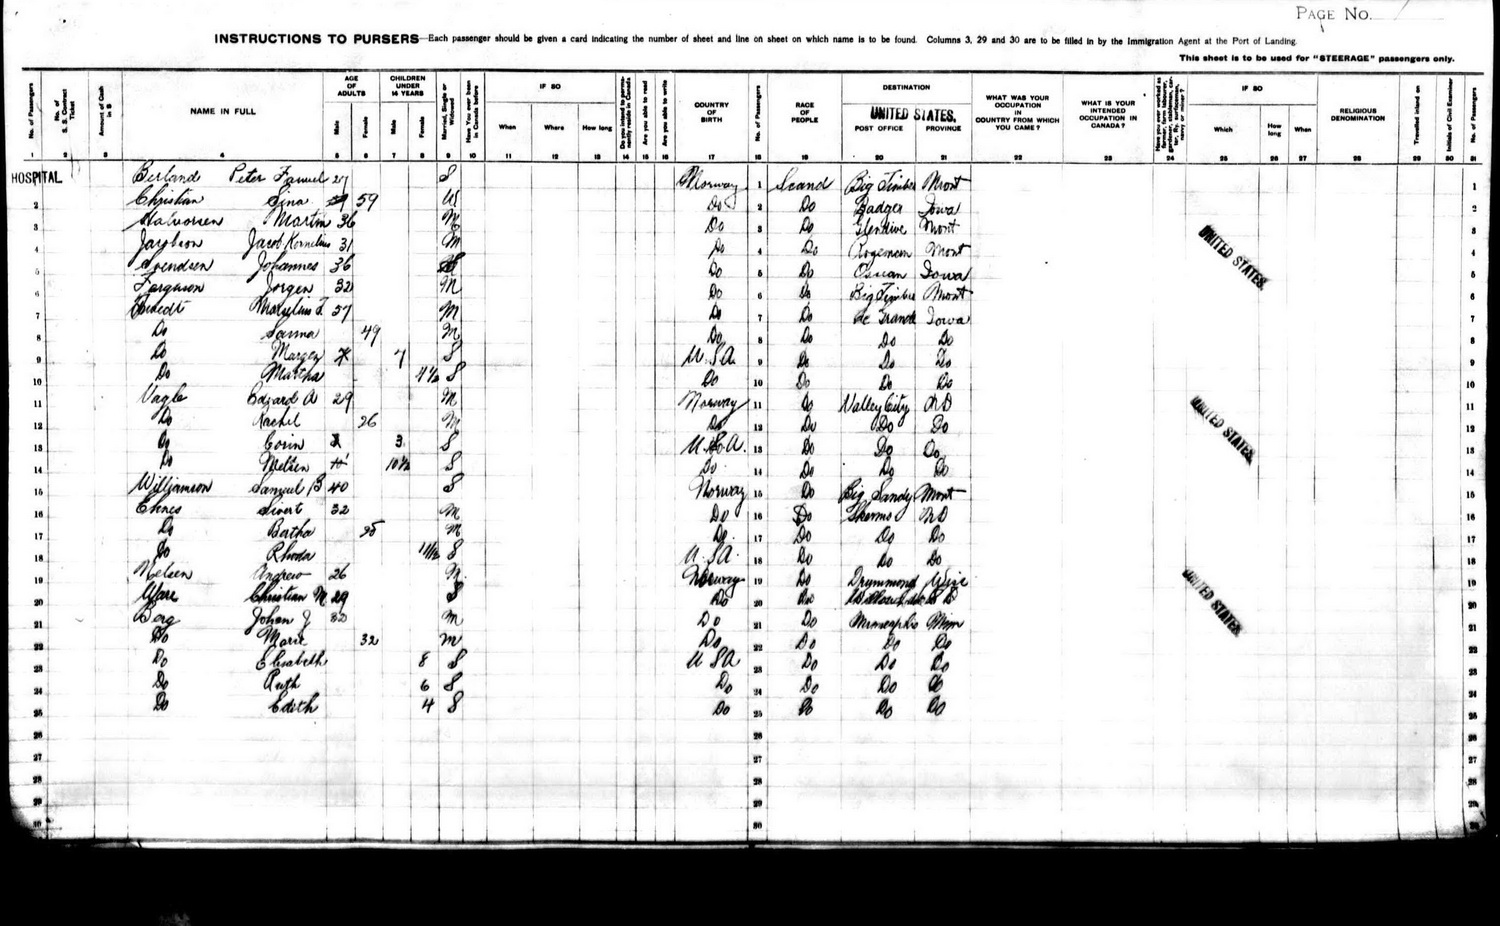 PAGE No. 1
INSTRUCTIONS TO PURSERS—Each passenger should be given a card indicating the number of sheet and line on sheet on which name is to be found. Columns 3, 29 and 30 are to be filled in by the Immigration Agent at the Port of Landing.
This sheet is to be used for "STEERAGE" passengers only.
No. of Passengers No. of S. S. Contract Ticket Amount of Cash in $ NAME IN FULL AGE OF ADULTS Male Female CHILDREN UNDER 14 YEARS Male Female Married, Single or Widowed Have You ever been in Canada before IF SO When Where How long Do you intend to permanently reside in Canada Are you able to read Are you able to write COUNTRY OF BIRTH No. of Passengers RACE OF PEOPLE DESTINATION UNITED STATES. POST OFFICE PROVINCE WHAT WAS YOUR OCCUPATION IN COUNTRY FROM WHICH YOU CAME? WHAT IS YOUR INTENDED OCCUPATION IN CANADA? IF SO Which How long When RELIGIOUS DENOMINATION Travelled Inland on Initials of Civil Examiner No. of Passengers
1 2 3 4 5 6 7 8 9 10 11 12 13 14 15 16 17 18 19 20 21 22 23 24 25 26 27 28 29 30 31
HOSPITAL Berland Peter 27 S Norway 1 Scand Big Timber Mont 1
2 Christian Sina 59 W Do 2 Do Badger Iowa 2
3 Halvorsen Martin 36 M Do 3 Do Glendive Mont 3
4 Jacobson Jacob Kornelius 31 M Do 4 Do Mont 4
5 Svendsen Johannes 36 Do 5 Do Ossian Iowa 5
6 Ferguson Jorgen 32 M Do 6 Do Big Timber Mont 6
7 57 M Do 7 Do Le Grand Iowa 7
8 Do Sanna 49 M Do 8 Do Do Do 8
9 Do 7 S U.S.A. 9 Do Do Do 9
10 Do Martha 4½ S Do 10 Do Do Do 10
11 Vagle Edvard A 29 M Norway 11 Do Valley City ND 11
12 Do Rachel 26 M Do 12 Do Do Do 12
13 Do Corin 3 S U.S.A. 13 Do Do Do 13
14 Do S Do 14 Do Do Do 14
15 Williamson Samuel B 40 S Norway 15 Do Big Sandy Mont 15
16 Sivert 32 M Do 16 Do ND 16
17 Do Bertha M Do 17 Do Do Do 17
18 Do Rhoda 11/12 S U.S.A. 18 Do Do Do 18
19 Nelsen Andrew 26 M Norway 19 Do Drummond 19
20 Christian M 29 S Do 20 Do 20
21 Berg Johan J 32 M Do 21 Do Minneapolis Minn 21
22 Do Marie 32 M Do 22 Do Do Do 22
23 Do Elisabeth 8 S U.S.A. 23 Do Do Do 23
24 Do Ruth 6 S Do 24 Do Do Do 24
25 Do Edith 4 S Do 25 Do Do Do 25
26 26 26
27 27 27
28 28 28
29 29 29
30 30
UNITED STATES.
UNITED STATES.
UNITED STATES.